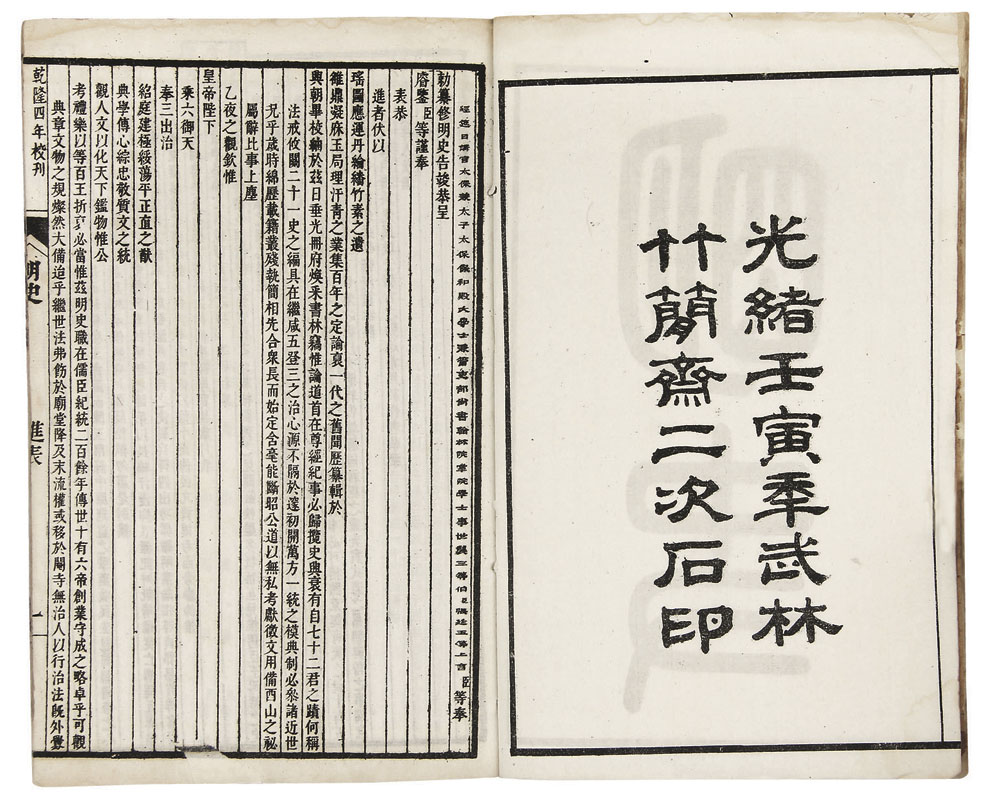 光緒壬寅秊武林
竹簡齋二次石印
經筵日講官太保兼太子太保保和殿大學士兼管吏部尚書翰林院掌院學士事世襲三等伯臣張廷玉等上言臣等奉
勅纂修明史告竣恭呈
睿鑒臣等謹奉
表恭
進者伏以
瑤圖應運丹綸繙竹素之遺
維鼎凝庥玉局理汗青之業集百年之定論裒一代之舊聞歷纂輯於
興朝畢校讎於茲日垂光冊府煥釆書林竊惟論道首在尊經紀事必歸攬史興衰有自七十二君之蹟何稱
法戒攸關二十一史之編具在繼咸五登三之治心源不隔於邃初開萬方一統之模典制必參諸近世
況乎歲時綿歷載籍叢殘執簡相先合衆長而始定含毫能斷昭公道以無私考獻徵文用備西山之祕
屬辭比事上塵
乙夜之觀欽惟
皇帝陛下
乘六御天
奉三出治
紹庭建極綏蕩平正直之猷
典學傳心綜忠敬質文之統
觀人文以化天下鑑物惟公
考禮樂以等百王折衷必當惟茲明史職在儒臣紀統二百餘年傳世十有六帝創業守成之略卓乎可觀
典章文物之規燦然大備迨乎繼世法弗飭於廟堂降及末流權或移於閹寺無治人以行治法旣外釁
乾隆四年校刊
明史
進表
一